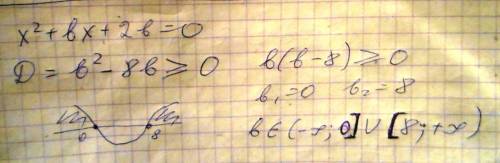 x² + bx + 2b = 0
D = b² - 8b ≥ 0
b(b-8) ≥ 0
b₁ = 0 b₂ = 8
0 8
b ∈ (-∞; 0] ∪ [8; +∞)